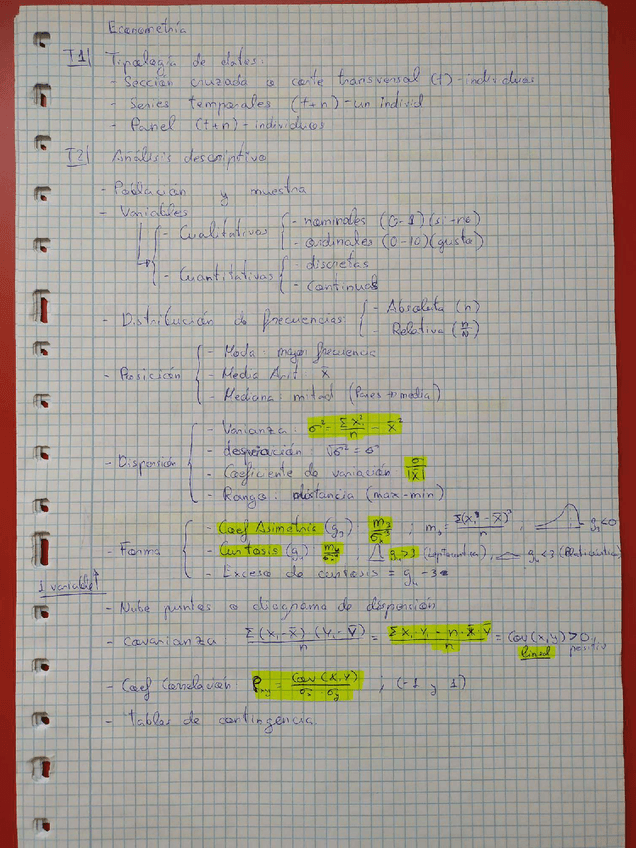 Econometría
T1 Tipología de datos:
- Sección cruzada o corte transversal (t) - individuos
- Series temporales (t+n) - un individ
- Panel (t+n) - individuos
T2 Análisis descriptivo
- Población y muestra
- Variables
- Cualitativas { - nominales (0-1) (si-no)
- ordinales (0-10) (gusto)
- Cuantitativas { - discretas
- continuas
- Distribución de frecuencias: { - Absoluta (n)
- Relativa (n/N)
- Posición { - Moda: mayor frecuencia
- Media Arit. x̄
- Mediana: mitad (Pares → media)
- Dispersión { - Varianza: σ² = Σx²/n - x̄²
- desviación: √σ² = σ
- Coeficiente de variación σ/|x̄|
- Rango: distancia (max-min)
- Forma { - Coef Asimetría (g₃) m₃/σ³ ; m₃ = Σ(xᵢ - x̄)³/n ; g₃<0
- Curtosis (g₄) m₄/σ⁴ ; g₄>3 (Leptocúrtica), g₄<3 (Platicúrtica)
- Exceso de curtosis = g₄ - 3
1 variable↑
- Nube puntos o diagrama de dispersión
- covarianza Σ(xᵢ-x̄)·(Yᵢ-Ȳ)/n = Σxᵢ·Yᵢ - n·x̄·Ȳ/n = Cov(x,y) > 0, positiv
lineal
- Coef Correlación ρxy = Cov(X,Y)/σx·σy ; (-1 y 1)
- Tablas de contingencia